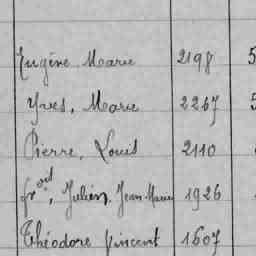 Eugène, Marie 2198 5
Yves, Marie 2267 5
Pierre, Louis 2110
frçois, Julien, Jean Marie 1926
Théodore Vincent 1607